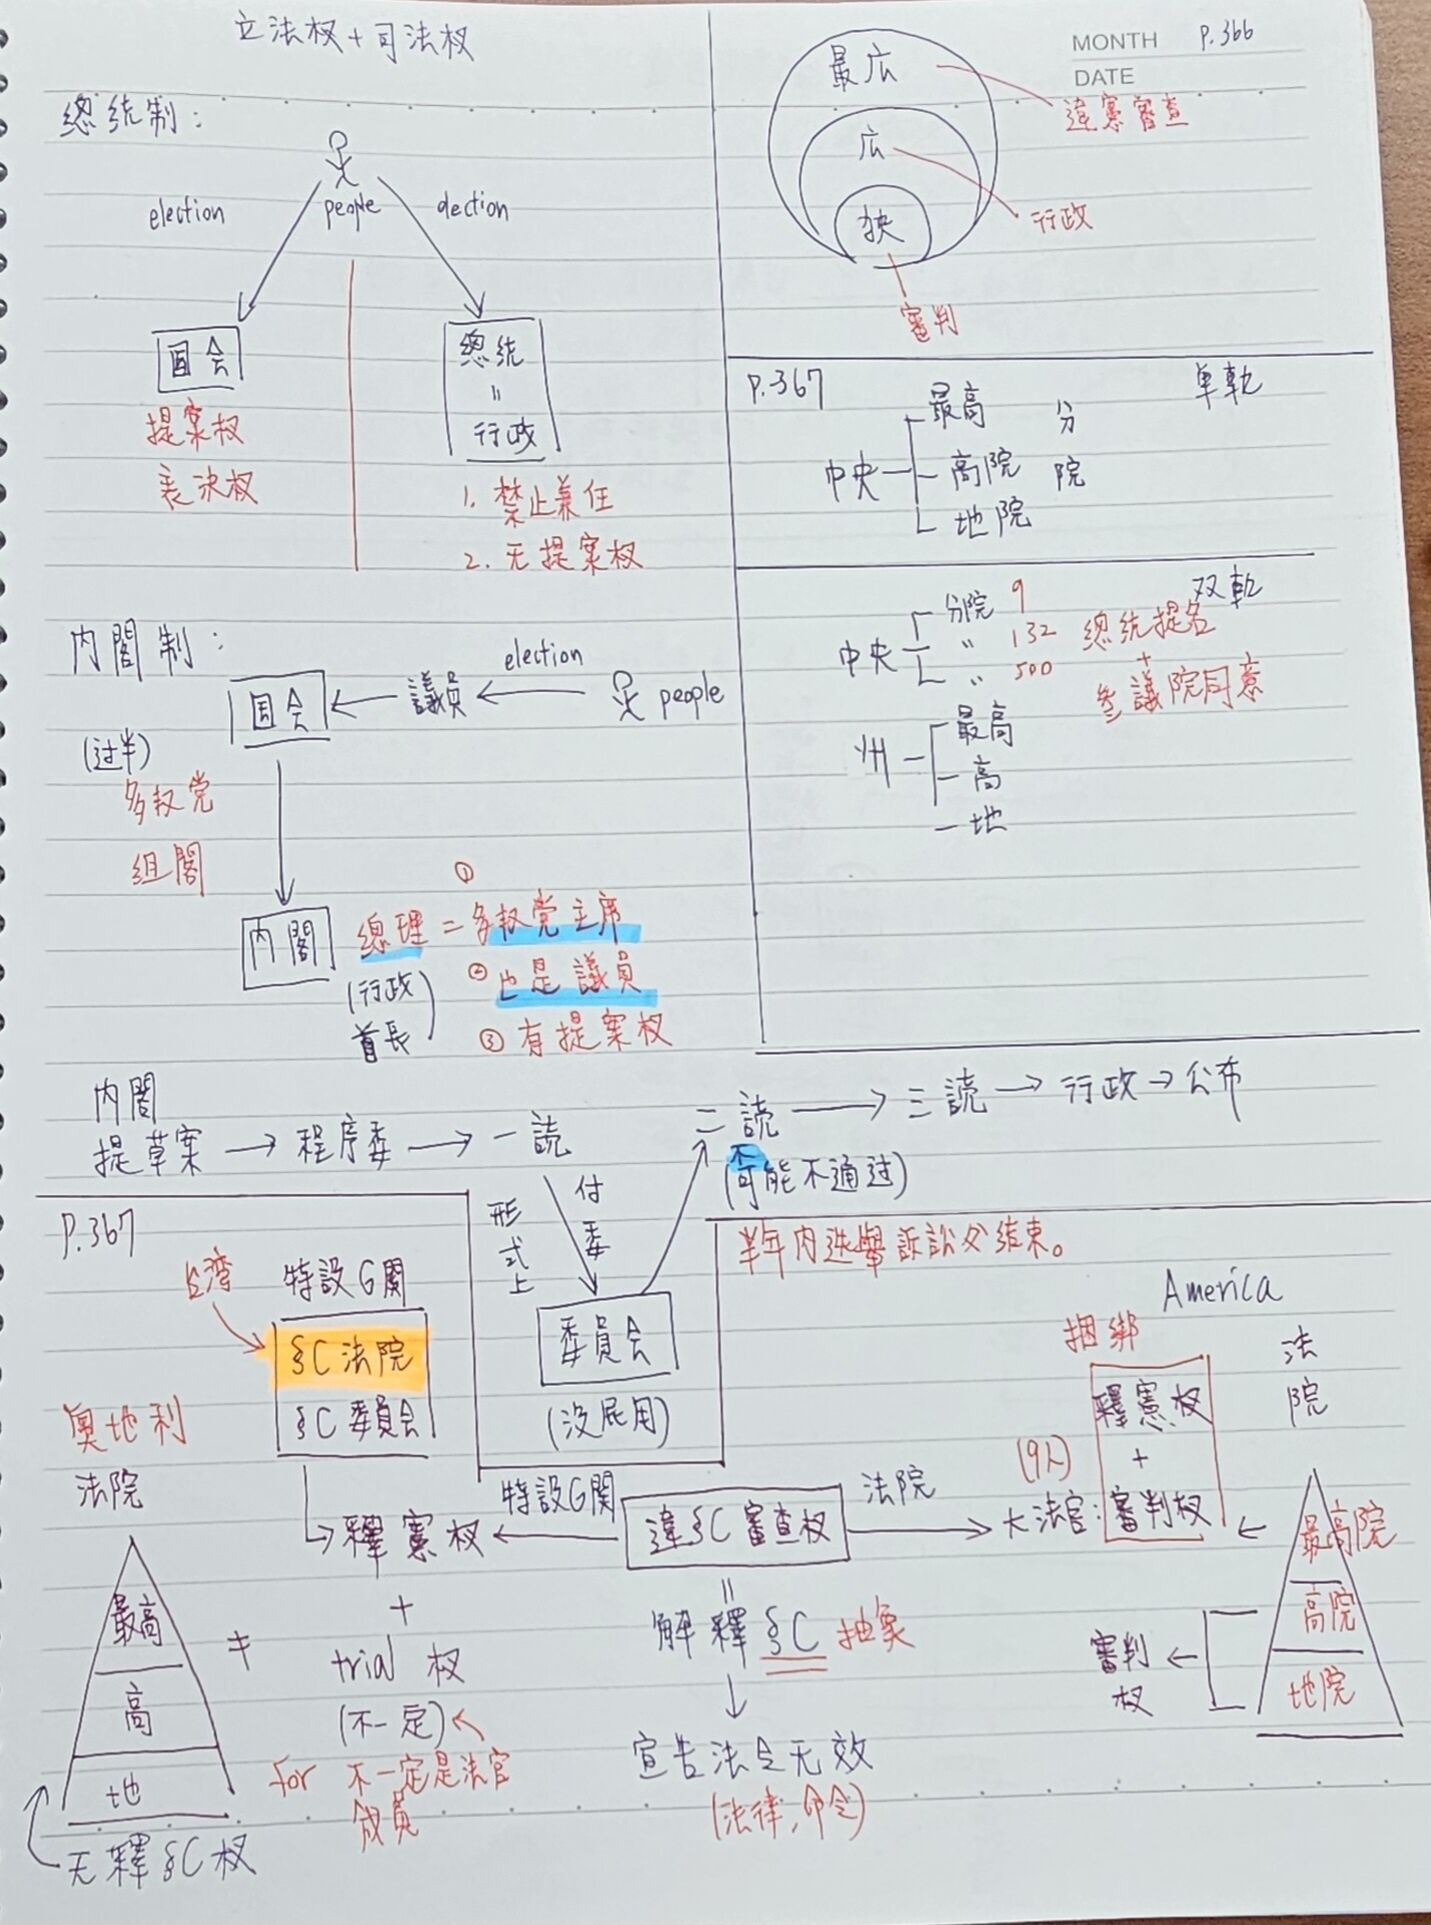 立法权+司法权
總統制:
election
people
election
国会
提案权
表決权
總統
〃
行政
1. 禁止兼任
2. 无提案权
内閣制:
国会
議員
election
people
(过半)
多权党
组閣
内閣
總理 = ① 多权党主席
(行政首長)
② 也是議員
③ 有提案权
内閣
提草案 → 程序委 → 一読
二読 → 三読 → 行政 → 公布
不
(可能不通过)
形式上
付委
委員会
(没屁用)
MONTH P.366
DATE
最広
広
狹
違憲審查
行政
審判
P.367
单軌
中央
最高
高院
地院
分院
双軌
中央
分院 9
〃 132
〃 500
總統提名
+
參議院同意
州
最高
高
地
P.367
台湾
特設G関
§C法院
§C委員会
奥地利
法院
最高
高
地
无釋§C权
≠
釋憲权
+
trial 权
(不一定)
for 不一定是法官
成員
特設G関
違§C審查权
法院
=
解釋§C 抽象
宣告法令无效
(法律,命令)
半年内选舉訴訟必结束。
America
捆綁
釋憲权
+
審判权
(9人)
大法官:
法院
最高院
高院
地院
審判权